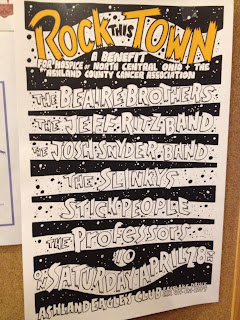 ROCK THIS TOWN
A BENEFIT
FOR HOSPICE OF NORTH CENTRAL OHIO + THE
ASHLAND COUNTY CANCER ASSOCIATION
THE BEALRE BROTHERS
THE JEFF RITZ BAND
THE JOSH SNYDER BAND
THE SLINKYS
STICK PEOPLE
THE PROFESSORS
$10
ON SATURDAY APRIL 28
ASHLAND EAGLES CLUB